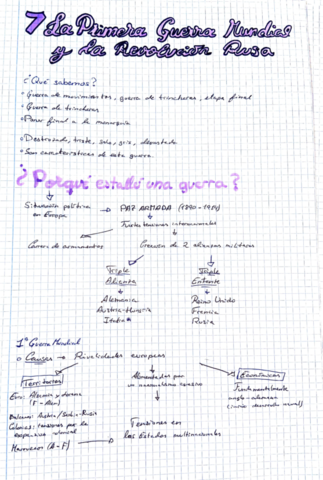 7 La Primera Guerra Mundial
y La Revolución Rusa
¿Qué sabemos?
Guerra de movimientos, guerra de trincheras, etapa final
Guerra de trincheras
Poner final a la monarquía
Destrozado, triste, solo, gris, devastado
Son características de esta guerra.
¿Porqué estalló una guerra?
Situación política → PAZ ARMADA (1890-1914)
en Europa
Fuertes tensiones internacionales
Carrera de armamentos
Creación de 2 alianzas militares
Triple
Alianza
Triple
Entente
Alemania
Austria-Hungría
Italia*
Reino Unido
Francia
Rusia
1ª Guerra Mundial
Causas → Rivalidades europeas
Territorios
Euro: Alsacia y Lorena
(F - Alem)
Balcanes: Austria/Serbia-Rusia
Colonias: tensiones por la
colonial
Marruecos (A-F)
Alimentadas por
un nacionalismo
Tensiones en
los Estados multinacionales
Económicas
Fundamentalmente
anglo-alemana
desarrollo naval)